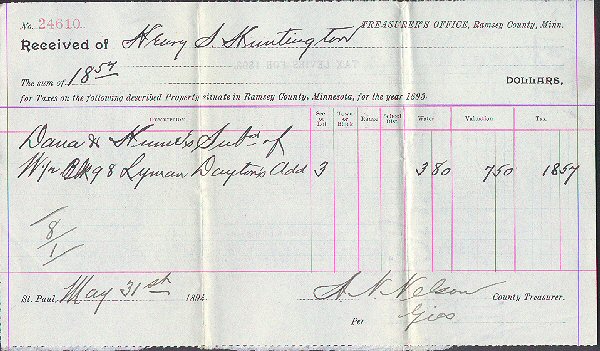 No. 24610. TREASURER'S OFFICE, Ramsey County, Minn.
Received of Henry S. Huntington
The sum of 18 57 DOLLARS,
for Taxes on the following described Property situate in Ramsey County, Minnesota, for the year 1893.
DESCRIPTION Sec or Lot Town or Block Range School Dist Water Valuation Tax
Dana & Subd of
W½ Blk 98 Lyman Dayton's Add 3 3 80 750 18 57
8/1
St. Paul, May 31st 1894. A. N. Nelson County Treasurer.
Per